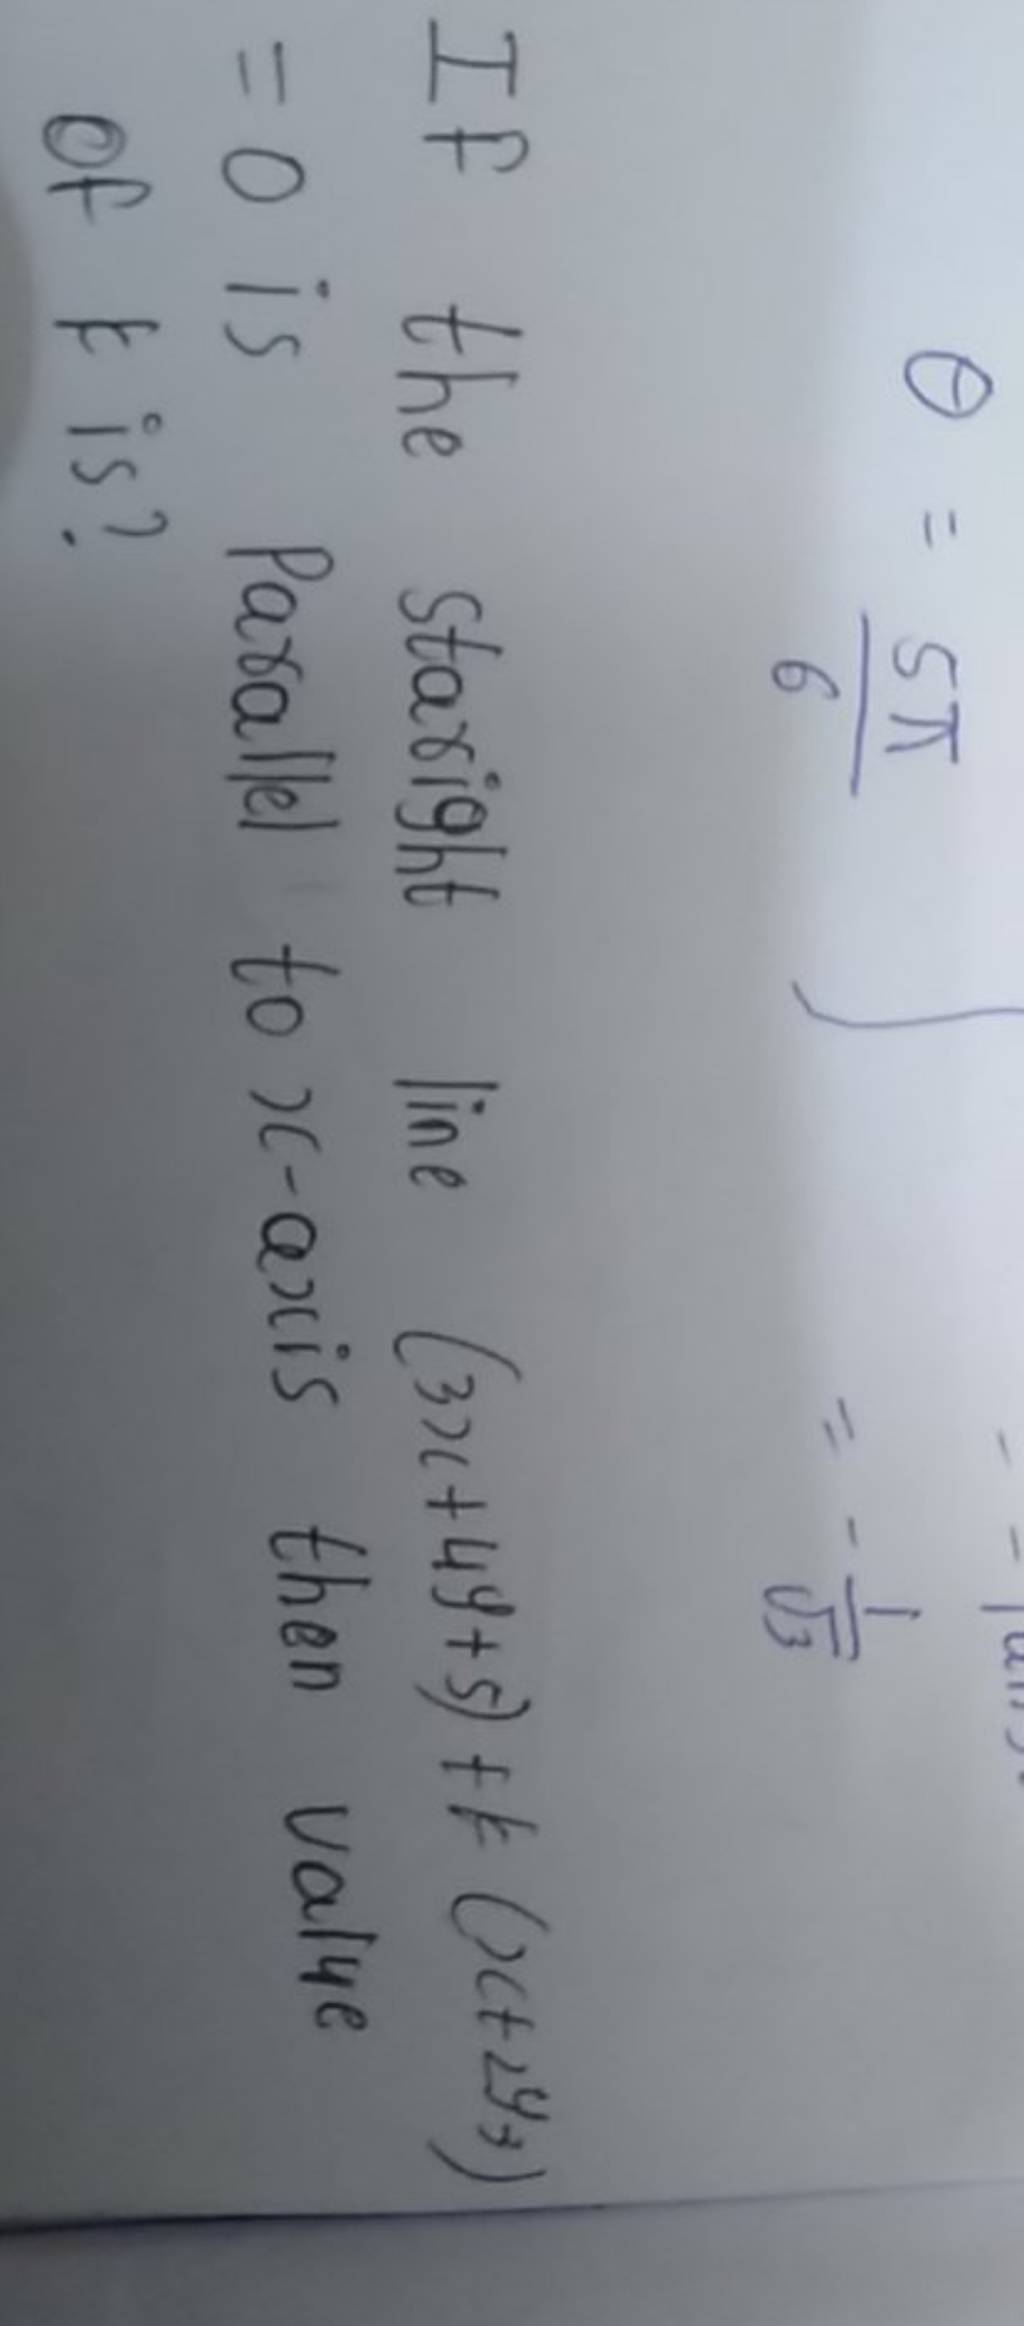 θ = 5π/6
= - 1/√3
If the staright line (3x+4y+5) + k (x+2y3)
= 0 is Parallel to x-axis then value
of k is?